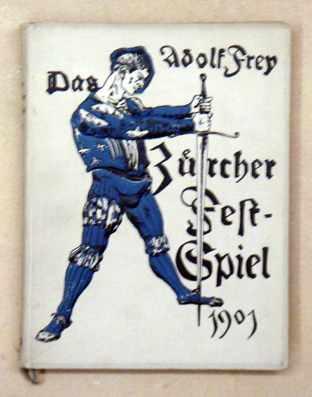 Adolf Frey
Das
Zürcher
Fest-
Spiel
1901